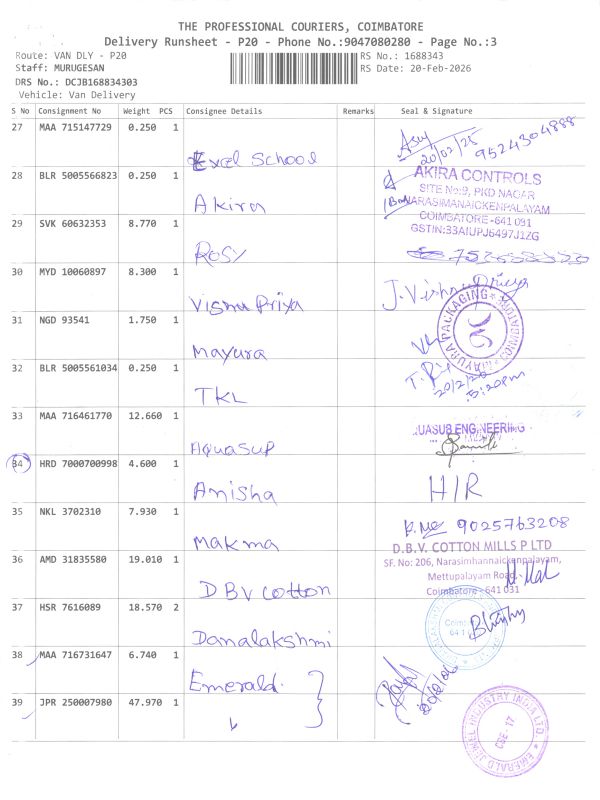 THE PROFESSIONAL COURIERS, COIMBATORE
Delivery Runsheet - P20 - Phone No.:9047080280 - Page No.:3
Route: VAN DLY - P20
RS No.: 1688343
Staff: MURUGESAN
RS Date: 20-Feb-2026
DRS No.: DCJB168834303
Vehicle: Van Delivery
S No Consignment No Weight PCS Consignee Details Remarks Seal & Signature
27 MAA 715147729 0.250 1
Excel School
20/02/26 9524304888
28 BLR 5005566823 0.250 1
Akira
AKIRA CONTROLS
SITE No:9, PKD NAGAR
NARASIMANAICKENPALAYAM
COIMBATORE-641 031
GSTIN:33AIUPJ6497J1ZG
29 SVK 60632353 8.770 1
Rosy
30 MYD 10060897 8.300 1
Vishnu Priya
J. Vishnu Priya
31 NGD 93541 1.750 1
Mayura
MAYURA PACKAGING
32 BLR 5005561034 0.250 1
TKL
20/2/26
5:20pm
33 MAA 716461770 12.660 1
Aquasup
UASUB ENGINEERING
34 HRD 7000700998 4.600 1
Anisha
H/R
35 NKL 3702310 7.930 1
Makma
9025763208
36 AMD 31835580 19.010 1
DBV Cotton
D.B.V. COTTON MILLS P LTD
SF. No: 206, Narasimhannaickenpalayam,
Mettupalayam Road,
Coimbatore - 641 031
37 HSR 7616089 18.570 2
Danalakshmi
38 MAA 716731647 6.740 1
Emerald
39 JPR 250007980 47.970 1
EMERALD JEWEL INDUSTRY INDIA LTD.
CBE - 17